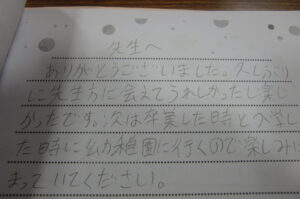 先生へ
ありがとうございました。久しぶり
に先生方に会えてうれしかったし楽し
かったです。次は卒業した時と入学し
た時に幼稚園に行くので楽しみに
まっていてください。